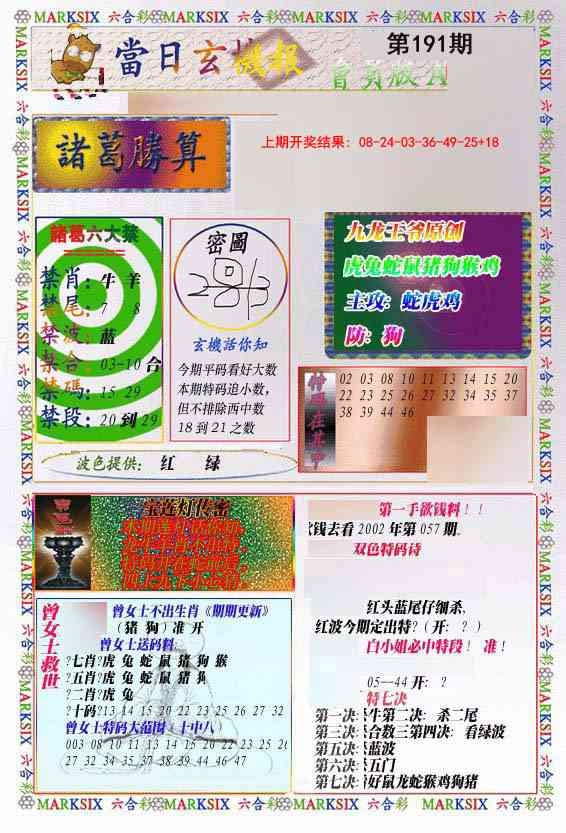 MARKSIX 六合彩 MARKSIX 六合彩 MARKSIX 六合彩 MARKSIX 六合彩
當日玄機报
第191期
會員版A
上期开奖结果：08-24-03-36-49-25+18
諸葛勝算
諸葛六大禁
禁肖：牛 羊
禁尾：7 8
禁波：蓝
禁合：03-10 合
禁碼：15 29
禁段：20 到 29
密圖
玄機話你知
今期平码看好大数
本期特码追小数，
但不排除西中数
18 到 21 之数
九龙王爷原创
虎兔蛇鼠猪狗猴鸡
主攻：蛇虎鸡
防：狗
特碼在其中
02 03 08 10 11 13 14 15 20
22 23 25 26 27 32 34 35 37
38 39 44 46
波色提供： 红 绿
宝莲灯传密
第一手欲钱料！！
欲钱去看 2002 年第 057 期。
双色特码诗
红头蓝尾仔细杀，
红波今期定出特?（开：？）
白小姐必中特段！ 准！
05—44 开：？
特七决
第一决：牛第二决：杀二尾
第三决：合数三第四决：看绿波
第五决：蓝波
第六决：五门
第七决：好鼠龙蛇猴鸡狗猪
曾女士救世
曾女士不出生肖《期期更新》
（猪 狗）准 开
曾女士送码料
?七肖?虎 兔 蛇 鼠 猪 狗 猴
?五肖?虎 兔 蛇 鼠 猪 狗
?二肖?虎 兔
?十码?13 14 15 20 22 23 25 26 27 32
曾女士特码大范围—十中八）
003 08 10 11 13 14 15 20 22 23 25 26
27 32 34 35 37 38 39 44 46 47
MARKSIX 六合彩 MARKSIX 六合彩 MARKSIX 六合彩 MARKSIX 六合彩